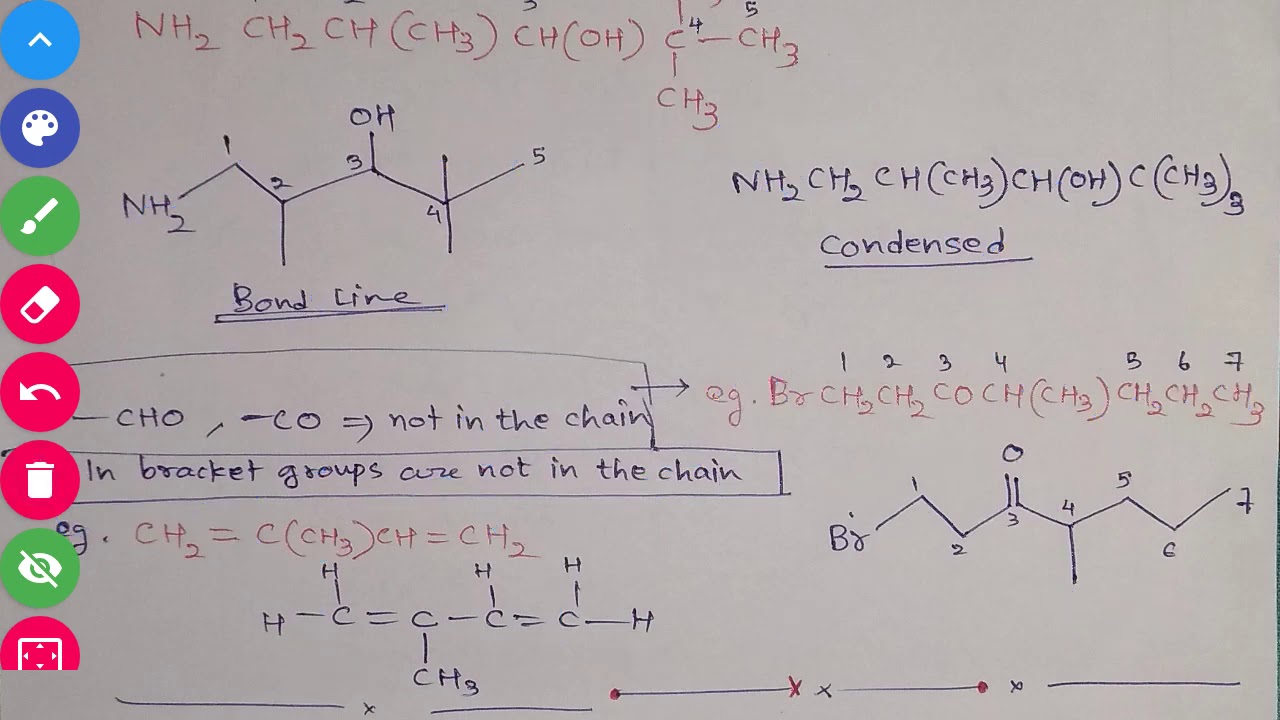 3 5
NH2 CH2 CH(CH3) CH(OH) C4—CH3
CH3
OH
1 2 3 4 5
NH2
Bond Line
NH2 CH2 CH(CH3)CH(OH) C(CH3)3
Condensed
—CHO, —CO ⇒ not in the chain
In bracket groups are not in the chain
1 2 3 4 5 6 7
eg. Br CH2 CH2 CO CH(CH3) CH2 CH2 CH3
O
Br 1 2 3 4 5 6 7
eg. CH2 = C(CH3)CH = CH2
H H H
H — C = C — C = C — H
CH3